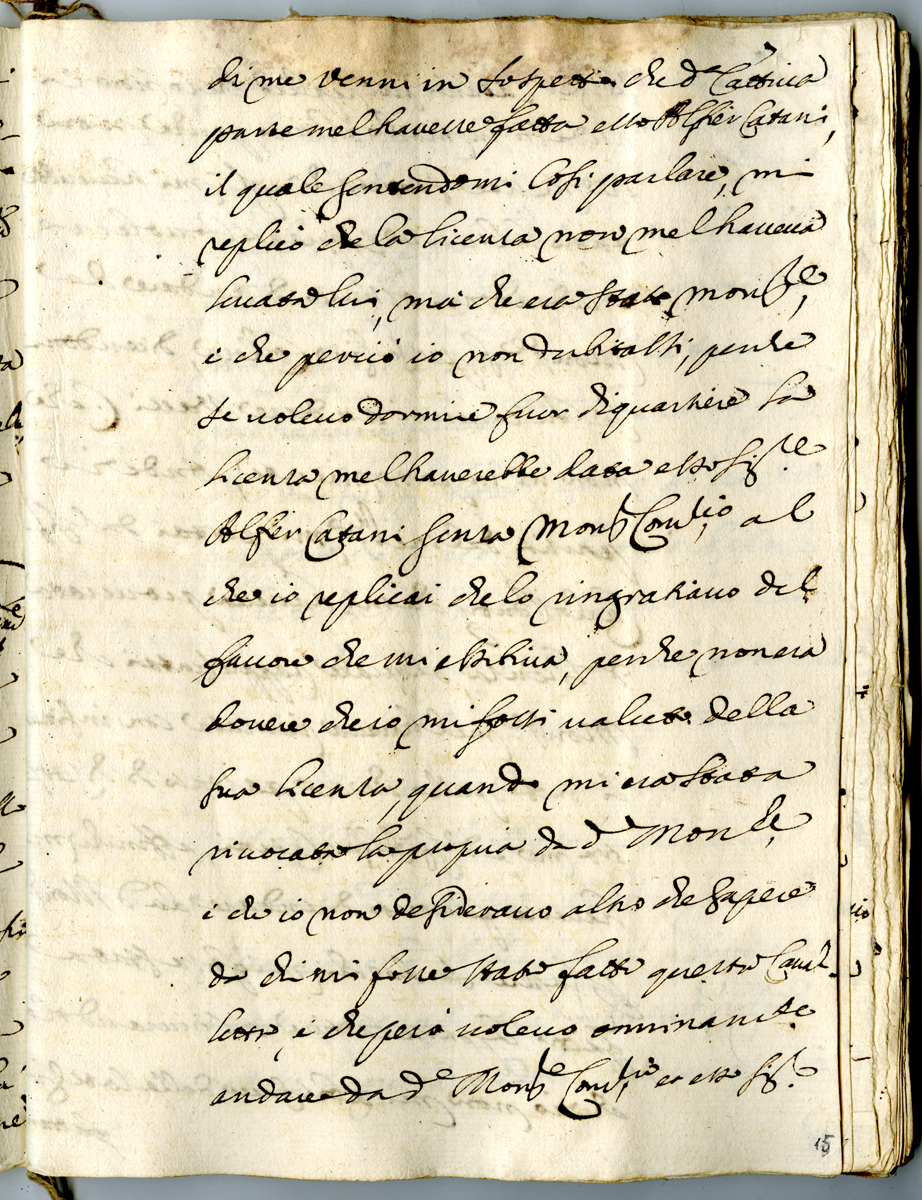 di me venni in sospetto che d.ª Cattiva
parte mel'havesse fatta esso Alfier Catani,
il quale sentendomi Cosi parlare, mi
replicò che la licenza non mel'haveva
levata lui, mà che era stato Mons.re,
è che perciò io non dubitassi, perche
se volevo dormire fuor di quartiere la
licenza mel'haverebbe data esso Sig.re
Alfier Catani senza Mons.r Com.rio, al
che io replicai che lo ringratiavo del
favore che mi essibiva, perche non era
dovere che io mi fossi valuto della
sua licenza, quando mi era stata
rivocata la propria da d.º Mons.re,
è che io non desideravo altro che sapere
da chi mi fosse stato fatto questo
è che però volevo onninam.te
andare da d.º Mons.re Com.rio et esso Sig.re
15